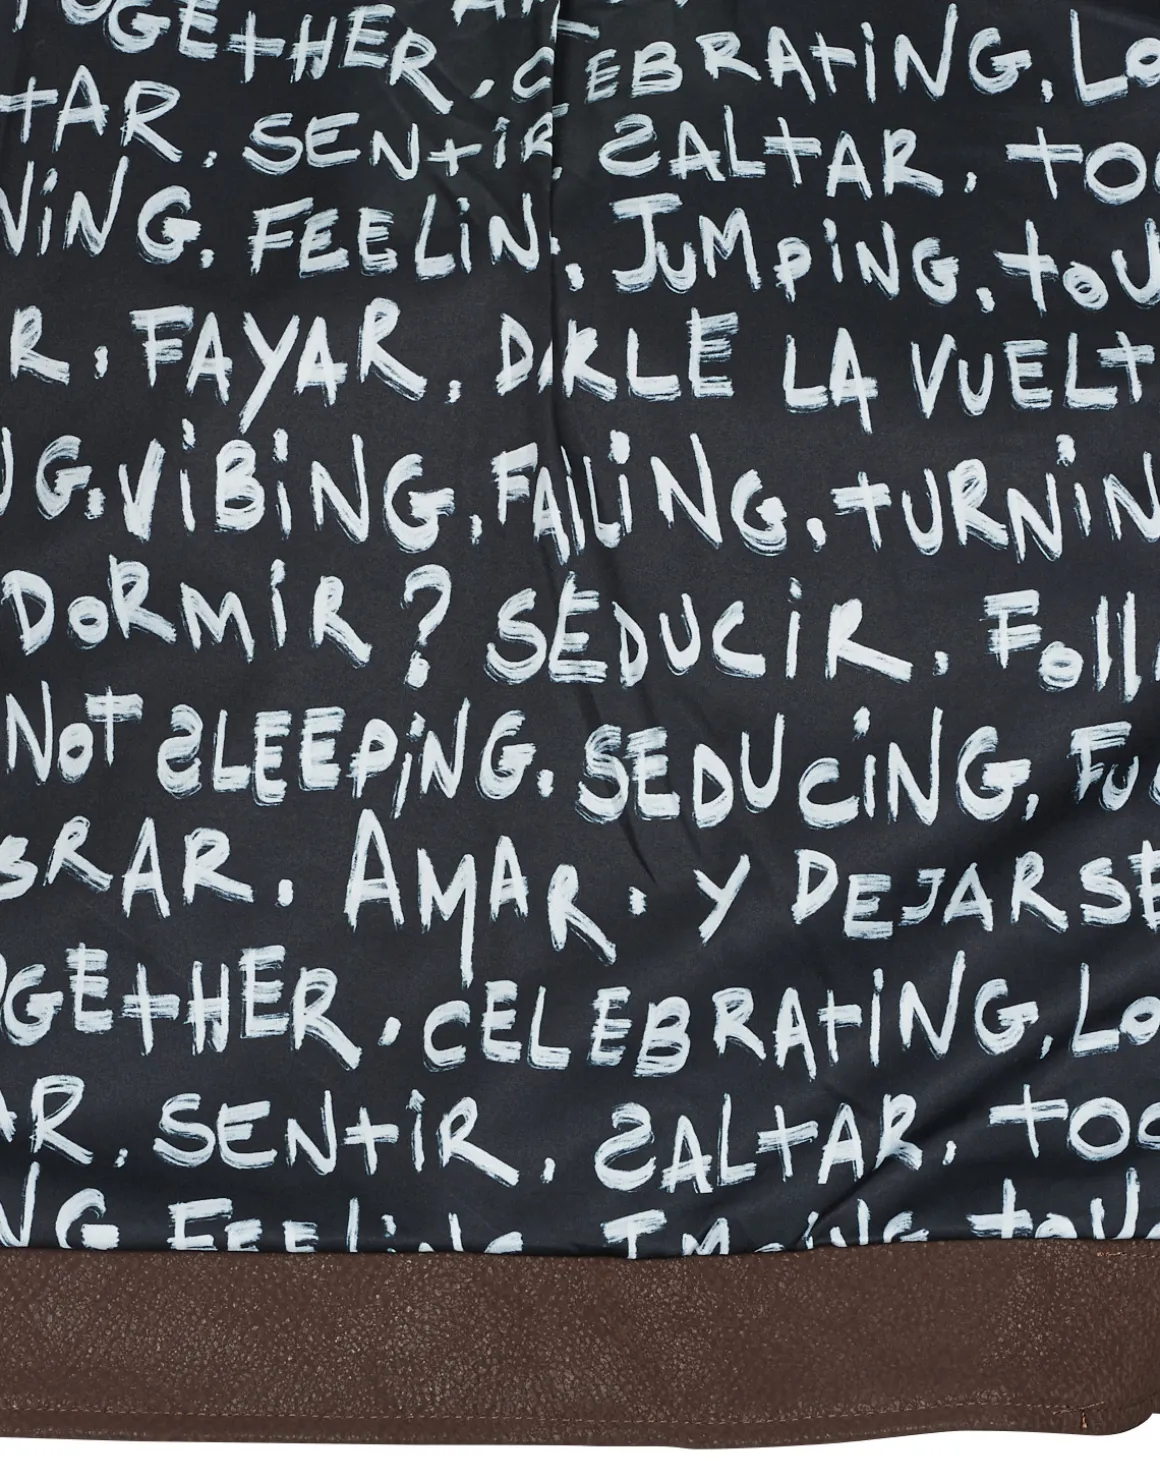 TOGETHER, CELEBRATING, LO
TAR, SENTIR, SALTAR, TOC
NING, FEELIN, JUMPING, TOU
R, FAYAR, DARLE LA VUELT
NG, VIBING, FAILING, TURNIN
DORMIR? SEDUCIR, FOLL
NOT SLEEPING, SEDUCING, FUC
BRAR, AMAR, Y DEJARSE
OGETHER, CELEBRATING, LO
AR, SENTIR, SALTAR, TOC
NG FEELIN JMPING TOU